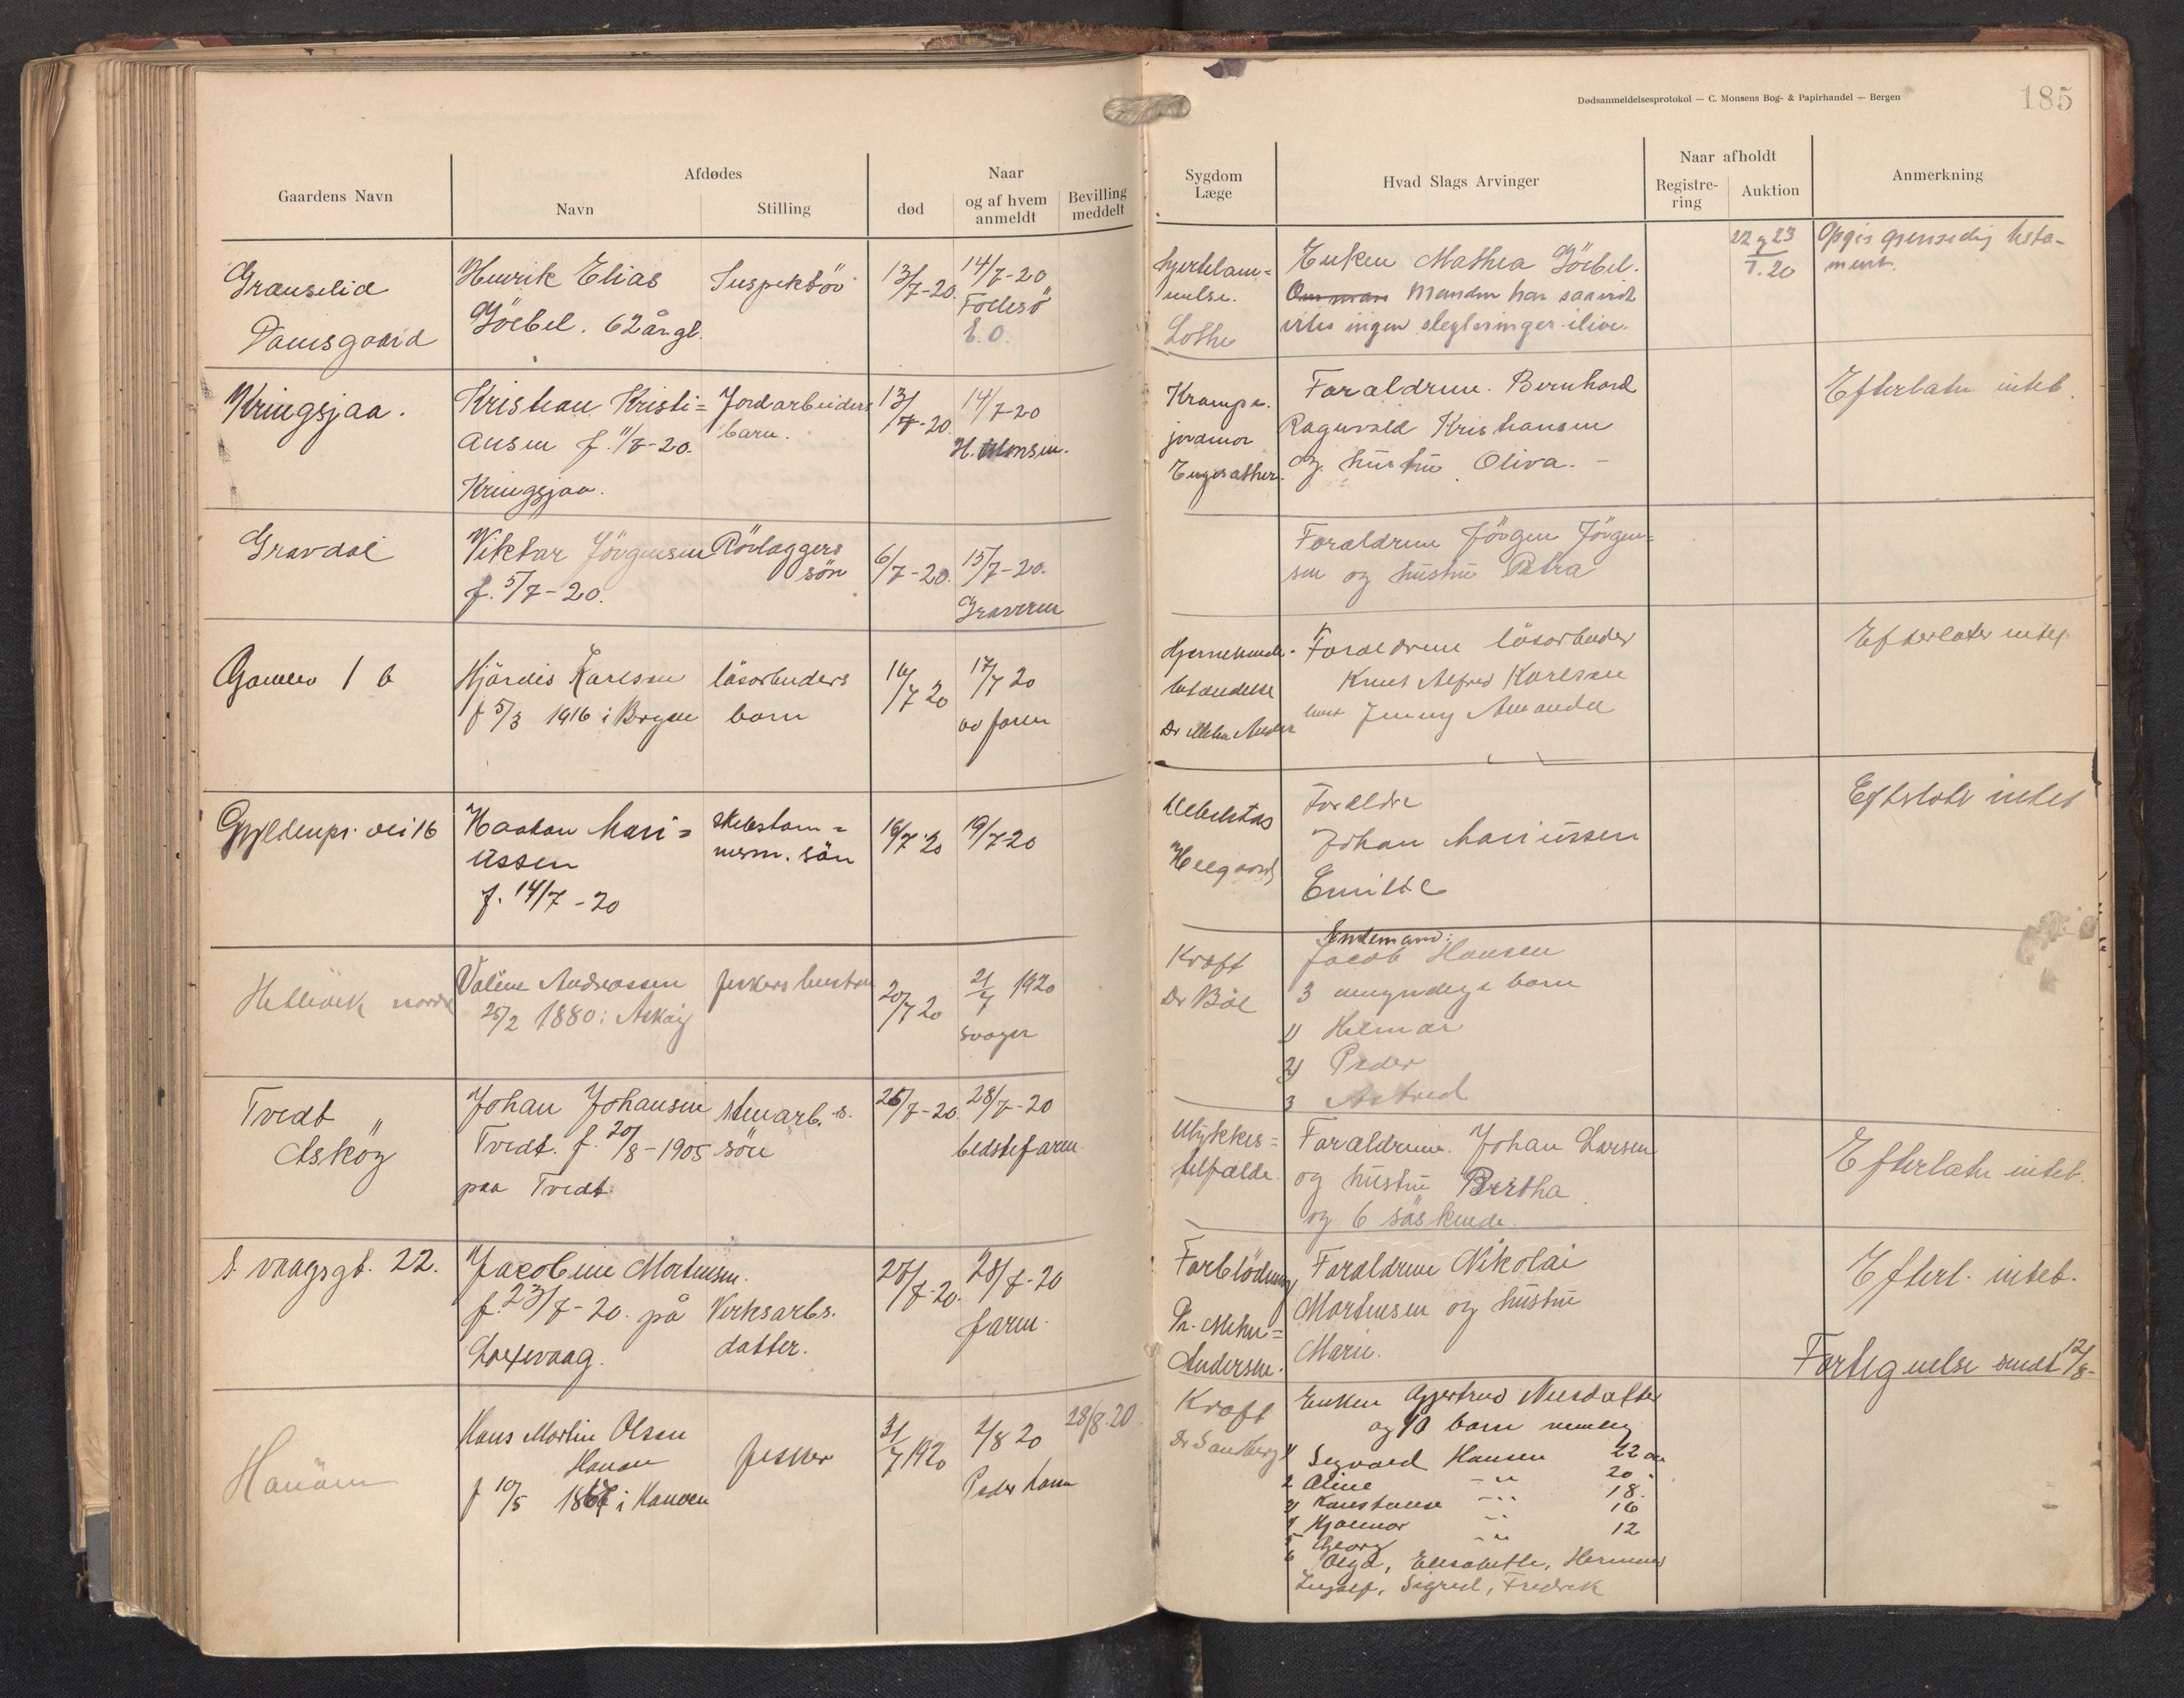 Dødsanmeldelsesprotokol — C. Monsens Bog- & Papirhandel — Bergen
185
Gaardens Navn
Afdødes
Navn
Stilling
Naar
død
og af hvem anmeldt
Bevilling meddelt
Sygdom Læge
Hvad Slags Arvinger
Naar afholdt
Registre-ring
Auktion
Anmerkning
Damsgaard
Henrik Elias
Göebel. 62 år gl.
Inspektör
13/7-20.
14/7-20
E.O.
Lothe
Enken Mathea Göebel.
Manden har saavidt
vites ingen slegtninger ilive.
22 & 23
7.20
Opgir gjensidig testa-
ment.
Kringsjaa.
Kristian Kristi=
ansen f. 11/7-20.
Kringsjaa.
Jordarbeiders
barn.
13/7-20
14/7-20
H. Monsen.
Krampe.
jordmor
Forældrene. Bernhard
Ragnvald Kristiansen
og hustru Oliva. -
Efterlater intet.
Gravdal
Viktor Jörgensen
f. 5/7-20.
Rörlæggers
sön
6/7-20.
15/7-20.
Graveren
Forældrene Jörgen Jörgen=
sen og hustru Petra
Hjördis Karlsen
f 5/3 1916 i Bergen
lösarbeiders
barn
16/7 20
17/7 20
av faren
Forældrene lösarbeider
Knut Alfred Karlsen
hust Jenny Amanda
Efterlater intet
Gyldenpr. vei 16
Haakon Mari=
ussen
f. 14/7-20
skibstöm=
merm. sön
16/7 20
19/7-20
Forældre
Johan Mariussen
Emilie
Efterlater intet
Valine Andreassen
25/2 1880 i Asköy
fiskers hustru
20/7 20
21/7 1920
svoger
Kræft
Dr Böe
Enkemand:
Jacob Hansen
3 umyndige barn
1) Hilmar
2) Peder
3 Astrid
Tvedt
Asköy
Johan Johansen
Tvedt. f. 20/8-1905
paa Tvedt
stenarb.s.
sön
26/7-20.
28/7-20
bedstefaren
Ulykkes=
tilfælde
Forældrene. Johan Larsen
og hustru Bertha
og 6 söskende.
Efterlater intet.
S. vaagsgt. 22.
Jacobine Mortensen.
f. 23/7-20. på
Laxevaag.
Verksarbs.
datter.
27/7-20.
28/7-20
faren.
Forblödning
Dr. Mohn=
Andersen.
Forældrene Nikolai
Mortensen og hustru
Marie.
Efterl. intet.
Hanöen
Hans Martin Olsen
Hanöen
f 10/5 1867 i Hanöen
fisker
31/7 1920
2/8 20
28/8.20.
Kræft
Dr Sandberg
Enken Gjertrud Nilsdatter
og 10 barn nemlig
1 Sigvald Hansen 22 aar
2 Aline -"- 20
3 Konstanse -"- 18.
4 Hjalmar -"- 16
5 Georg -"- 12
6 Olga, Elisabeth, Herman
Ingolf, Sigrid, Fredrik
Fortegnelse sendt 12/8-